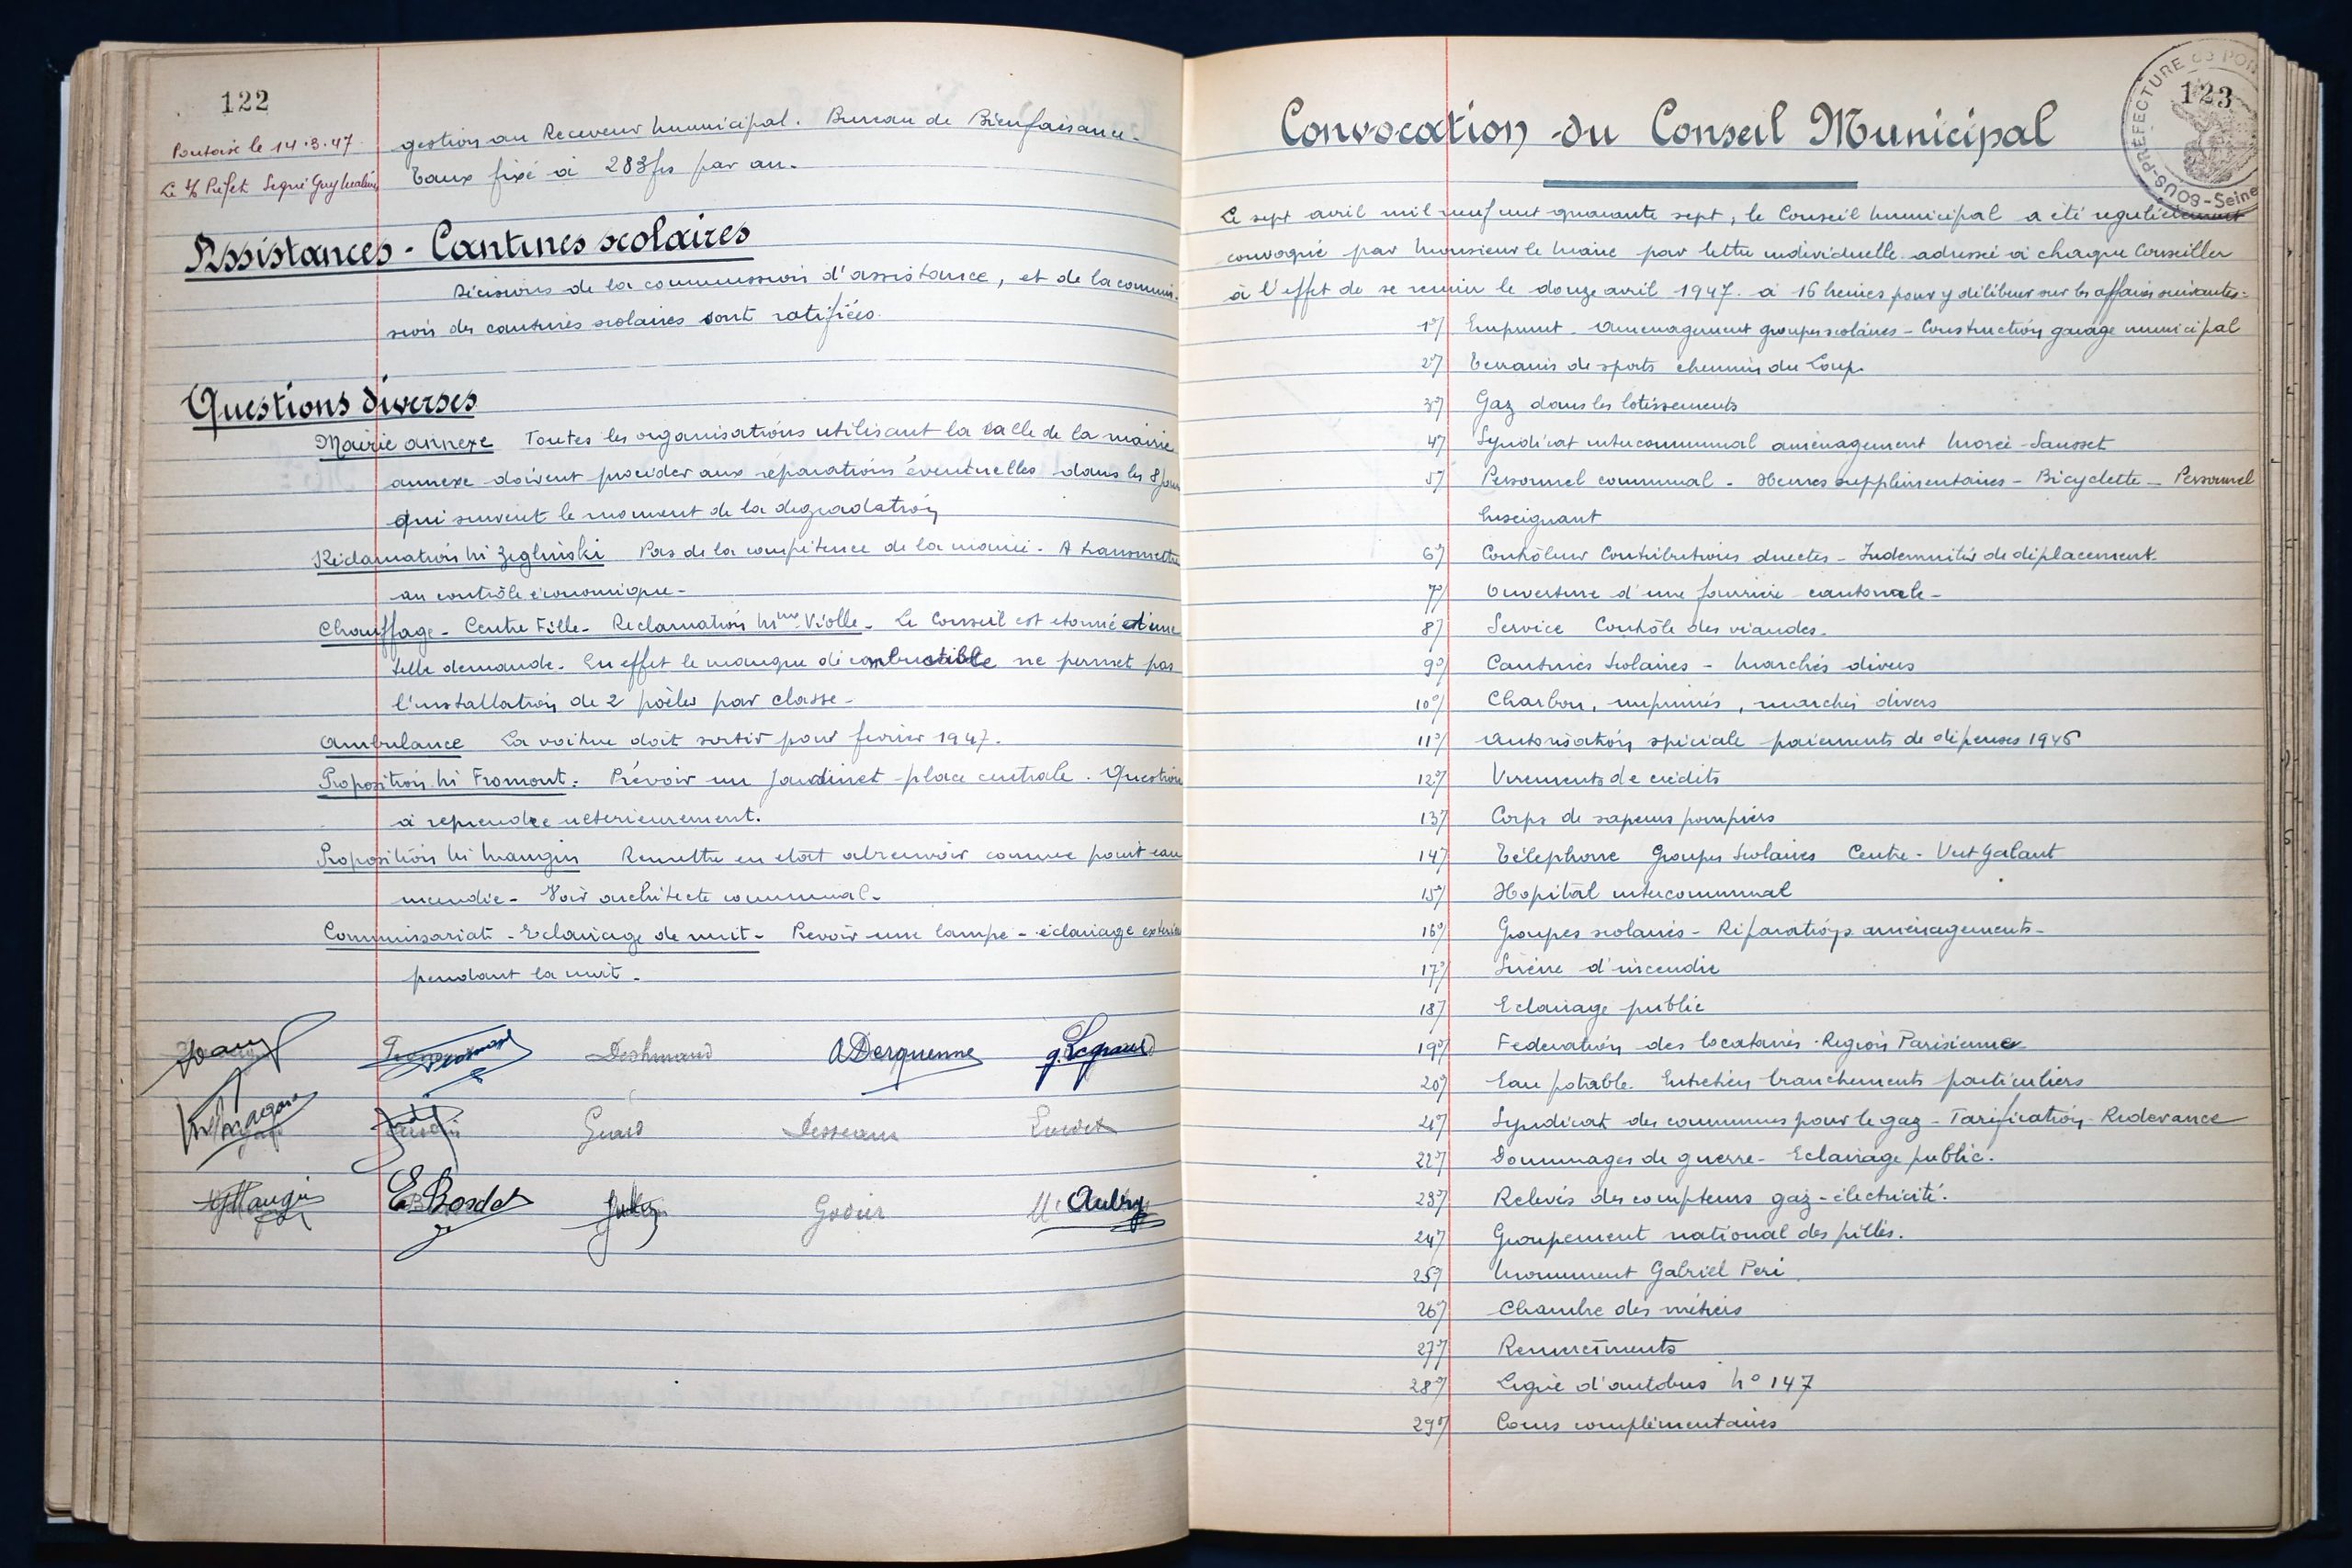 122
Pontoise le 14.3.47
Le s/s Préfet Signé Guy
gestion au Receveur municipal. Bureau de Bienfaisance.
Taux fixé à 283 frs par an.
Assistances - Cantines scolaires
Décisions de la commission d'assistance, et de la commis-
sion des cantines scolaires sont ratifiées.
Questions diverses
Mairie annexe Toutes les organisations utilisant la salle de la mairie
annexe doivent procéder aux réparations éventuelles dans les 8 jours
qui suivent le moment de la dégradation
Réclamation Mr Zeglinski Pas de la compétence de la mairie. A transmettre
au contrôle économique-
Chauffage - Centre Fille- Reclamation Mme Violle- Le Conseil est etonné d'une
telle demande. En effet le manque de combustible ne permet pas
l'installation de 2 poêles par classe-
Ambulance La voiture doit sortir pour fevrier 1947.
Proposition Mr Fromont: Prévoir un Jardinet - place centrale. Question
à reprendre ulterieurement.
Proposition Mr Mangin Remettre en etat abreuvoir comme point eau
incendie- Voir architecte communal-
Commissariat - Eclairage de nuit- Prevoir une lampe - éclairage exterieur
pendant la nuit-
Fromont Deshmaud A Derquenne G. Legrand
Girard Desseaux
Mangin E. Bosdet Godier Aubry
SOUS-PRÉFECTURE de PON
Seine
123
Convocation du Conseil Municipal
Le sept avril mil neuf cent quarante sept, le Conseil municipal a été regulièrement
convoqué par Monsieur le Maire par lettre individuelle adressée à chaque Conseiller
à l'effet de se reunir le douze avril 1947 à 16 heures pour y délibérer sur les affaires suivantes:
1°/ Emprunt - Aménagement groupes scolaires - Construction garage municipal
2°/ Terrains de sports chemin du Loup.
3°/ Gaz dans les lotissements
4°/ Syndicat intercommunal aménagement Morée-Sausset
5°/ Personnel communal - Heures supplémentaires - Bicyclette - Personnel
Enseignant
6°/ Contrôleur Contributions directes - Indemnités de déplacement.
7°/ Ouverture d'une fourrière cantonale-
8°/ Service Contôle des viandes.
9°/ Cantines Scolaires - Marchés divers
10°/ Charbon, imprimés, marchés divers
11°/ Autorisation spéciale paiements de dépenses 1946
12°/ Virements de crédits
13°/ Corps de sapeurs pompiers
14°/ Téléphone Groupes Scolaires Centre - Vert Galant
15°/ Hopital intercommunal
16°/ Groupes scolaires - Réparations aménagements-
17°/ Sirène d'incendie
18°/ Eclairage public
19°/ Fédération des locataires - Région Parisienne
20°/ Eau potable. Entretien branchements particuliers
21°/ Syndicat des communes pour le gaz - Tarification - Redevance
22°/ Dommages de guerre - Eclairage public.
23°/ Relevés des compteurs gaz-électricité.
24°/ Groupement national des pillés.
25°/ Monument Gabriel Peri
26°/ Chambre des métiers
27°/ Remerciments
28°/ Ligne d'autobus N° 147
29°/ Cours complémentaires